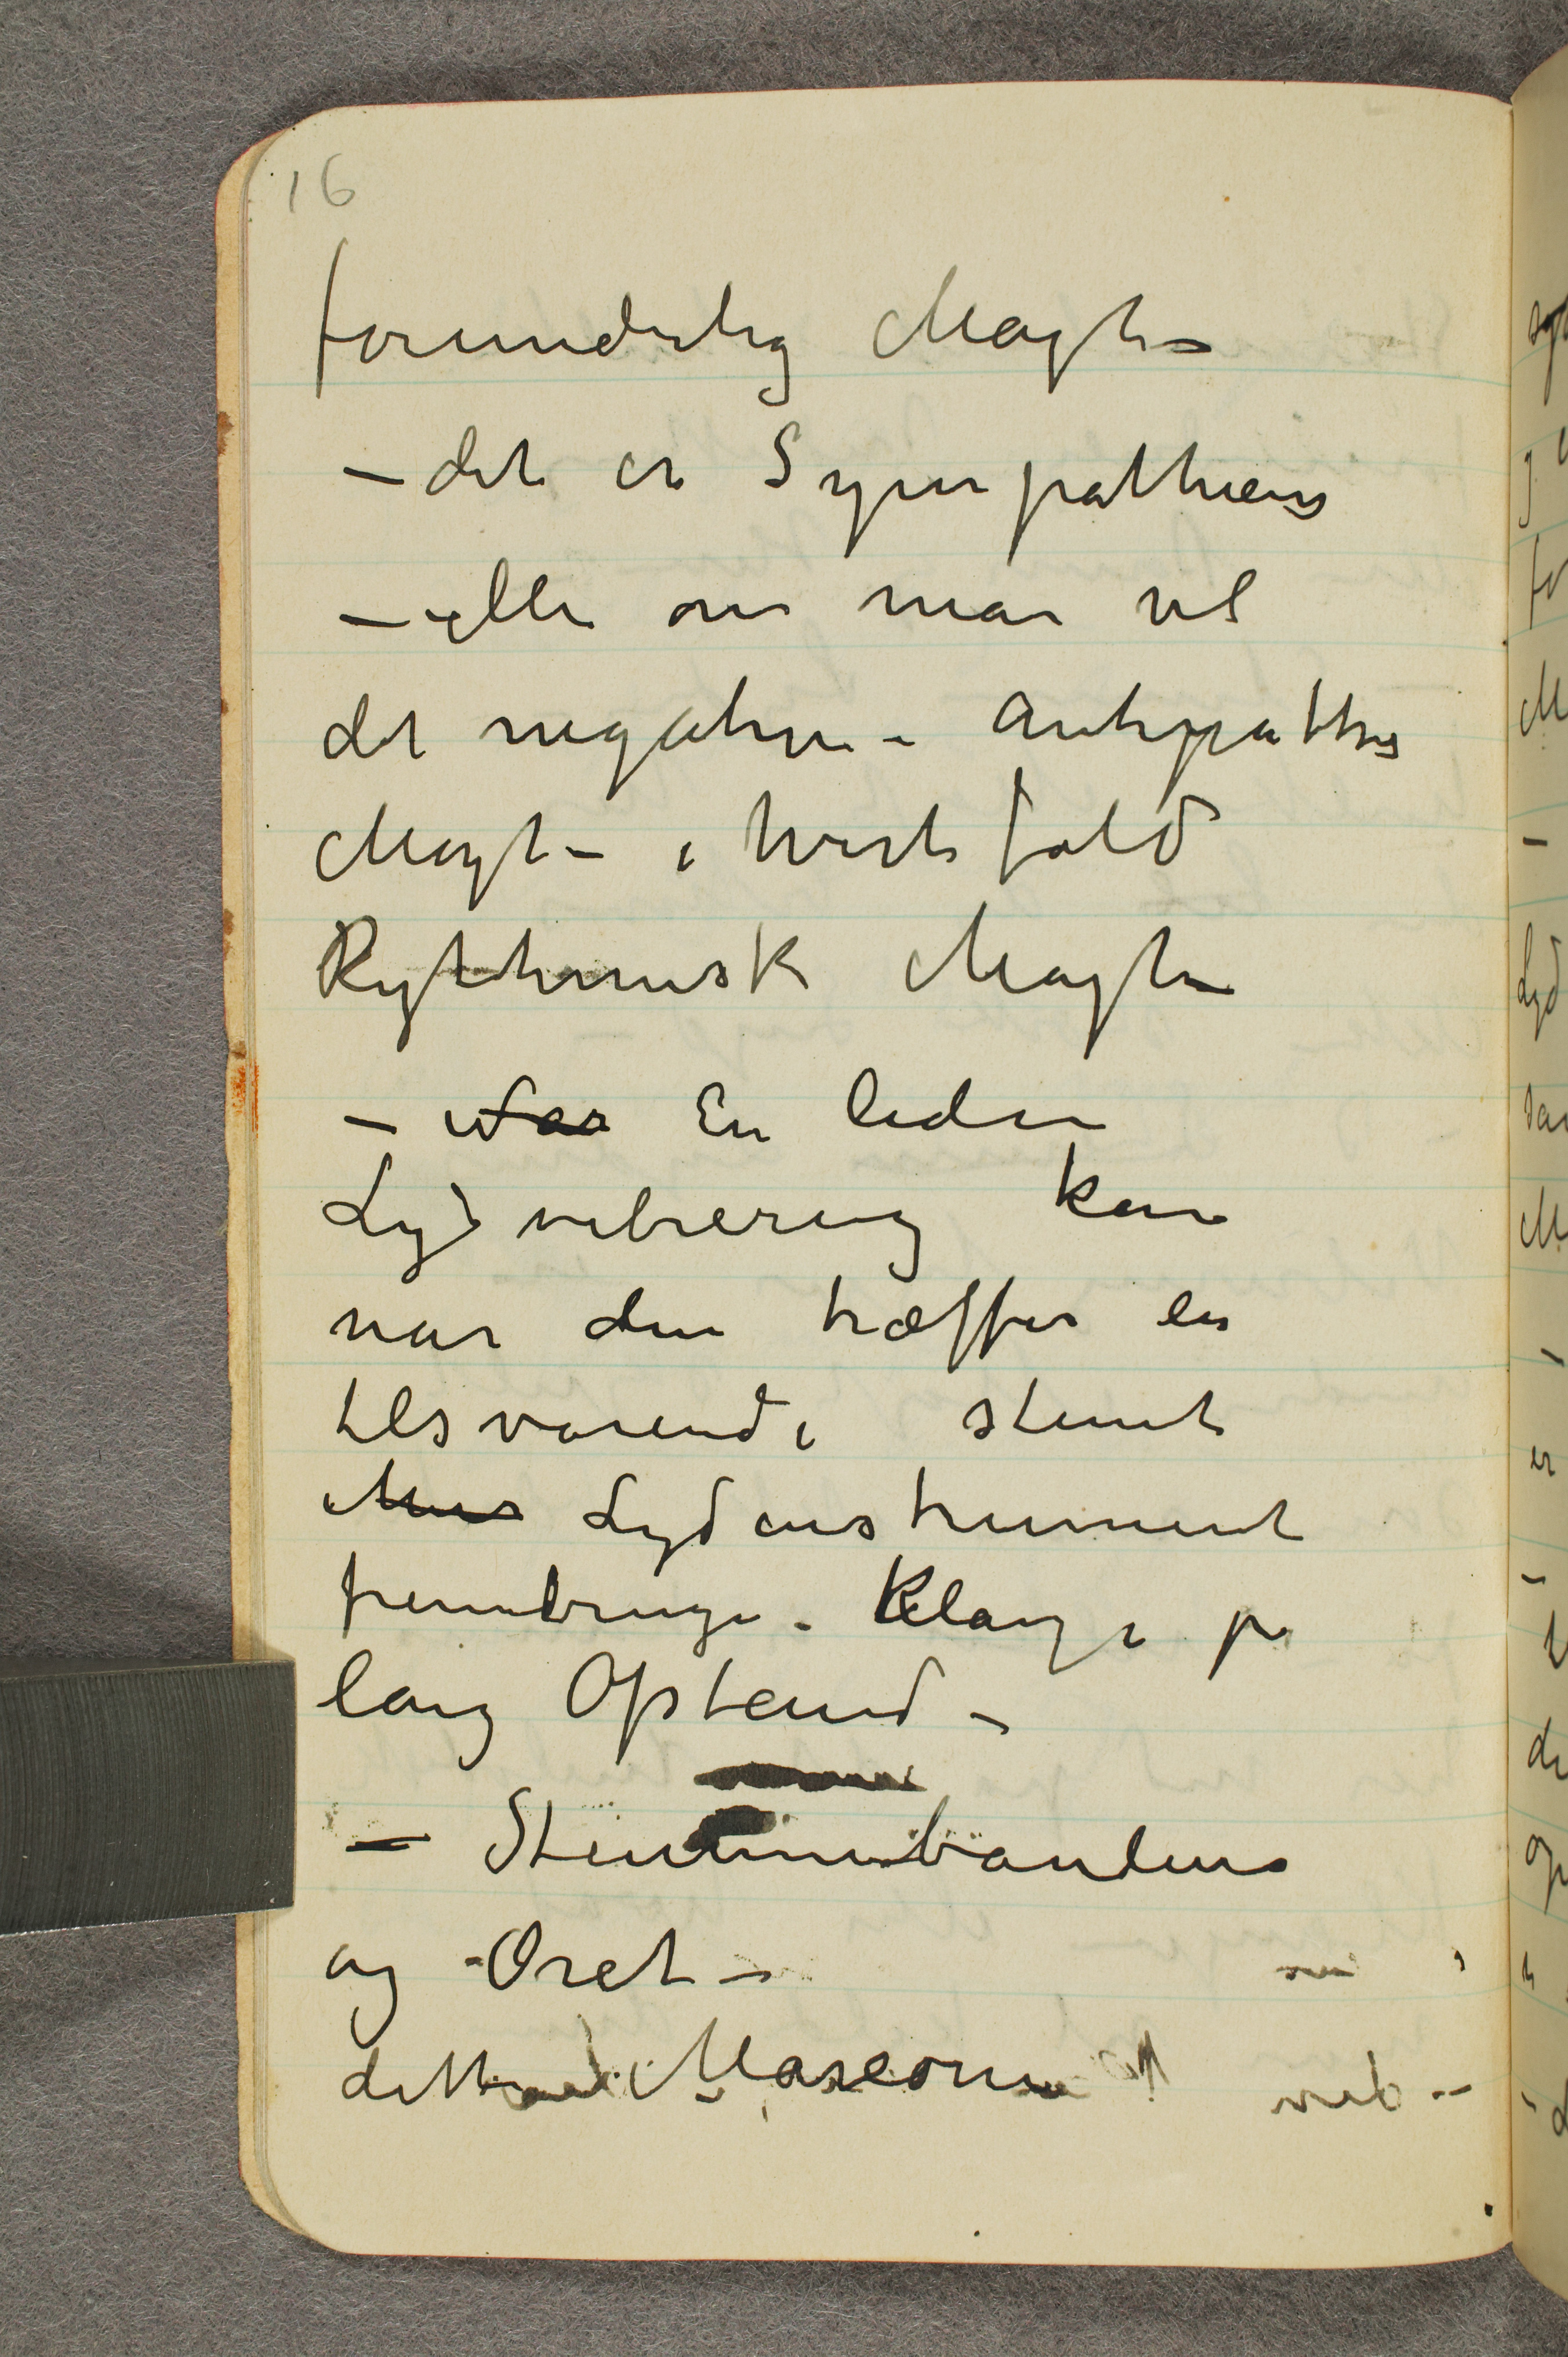 16
forunderlig Magt –
– det er Sympathiens
– eller om man vil
det negative – Antipathis
Magt – i hvert fald
Rythmisk Magt –
– Når En liden
Lydvibrering kan
når den træffer en
tilsvarende stemt
Mus Lydinstrument
frembringe – Klange på
lang Afstand –
– Stemmebånden
og Øret –
dette Marconi